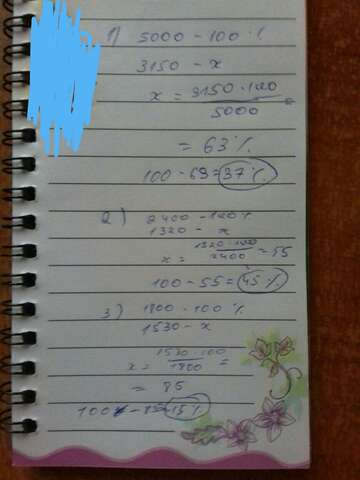 1) 5000 - 100 %
3150 - x
x = 3150 · 100 / 5000 =
= 63 %
100 - 63 = 37 %
2) 2400 - 100 %
1320 - x
x = 1320 · 100 / 2400 = 55
100 - 55 = 45 %
3) 1800 - 100 %
1530 - x
x = 1530 · 100 / 1800 =
= 85
100 - 85 = 15 %